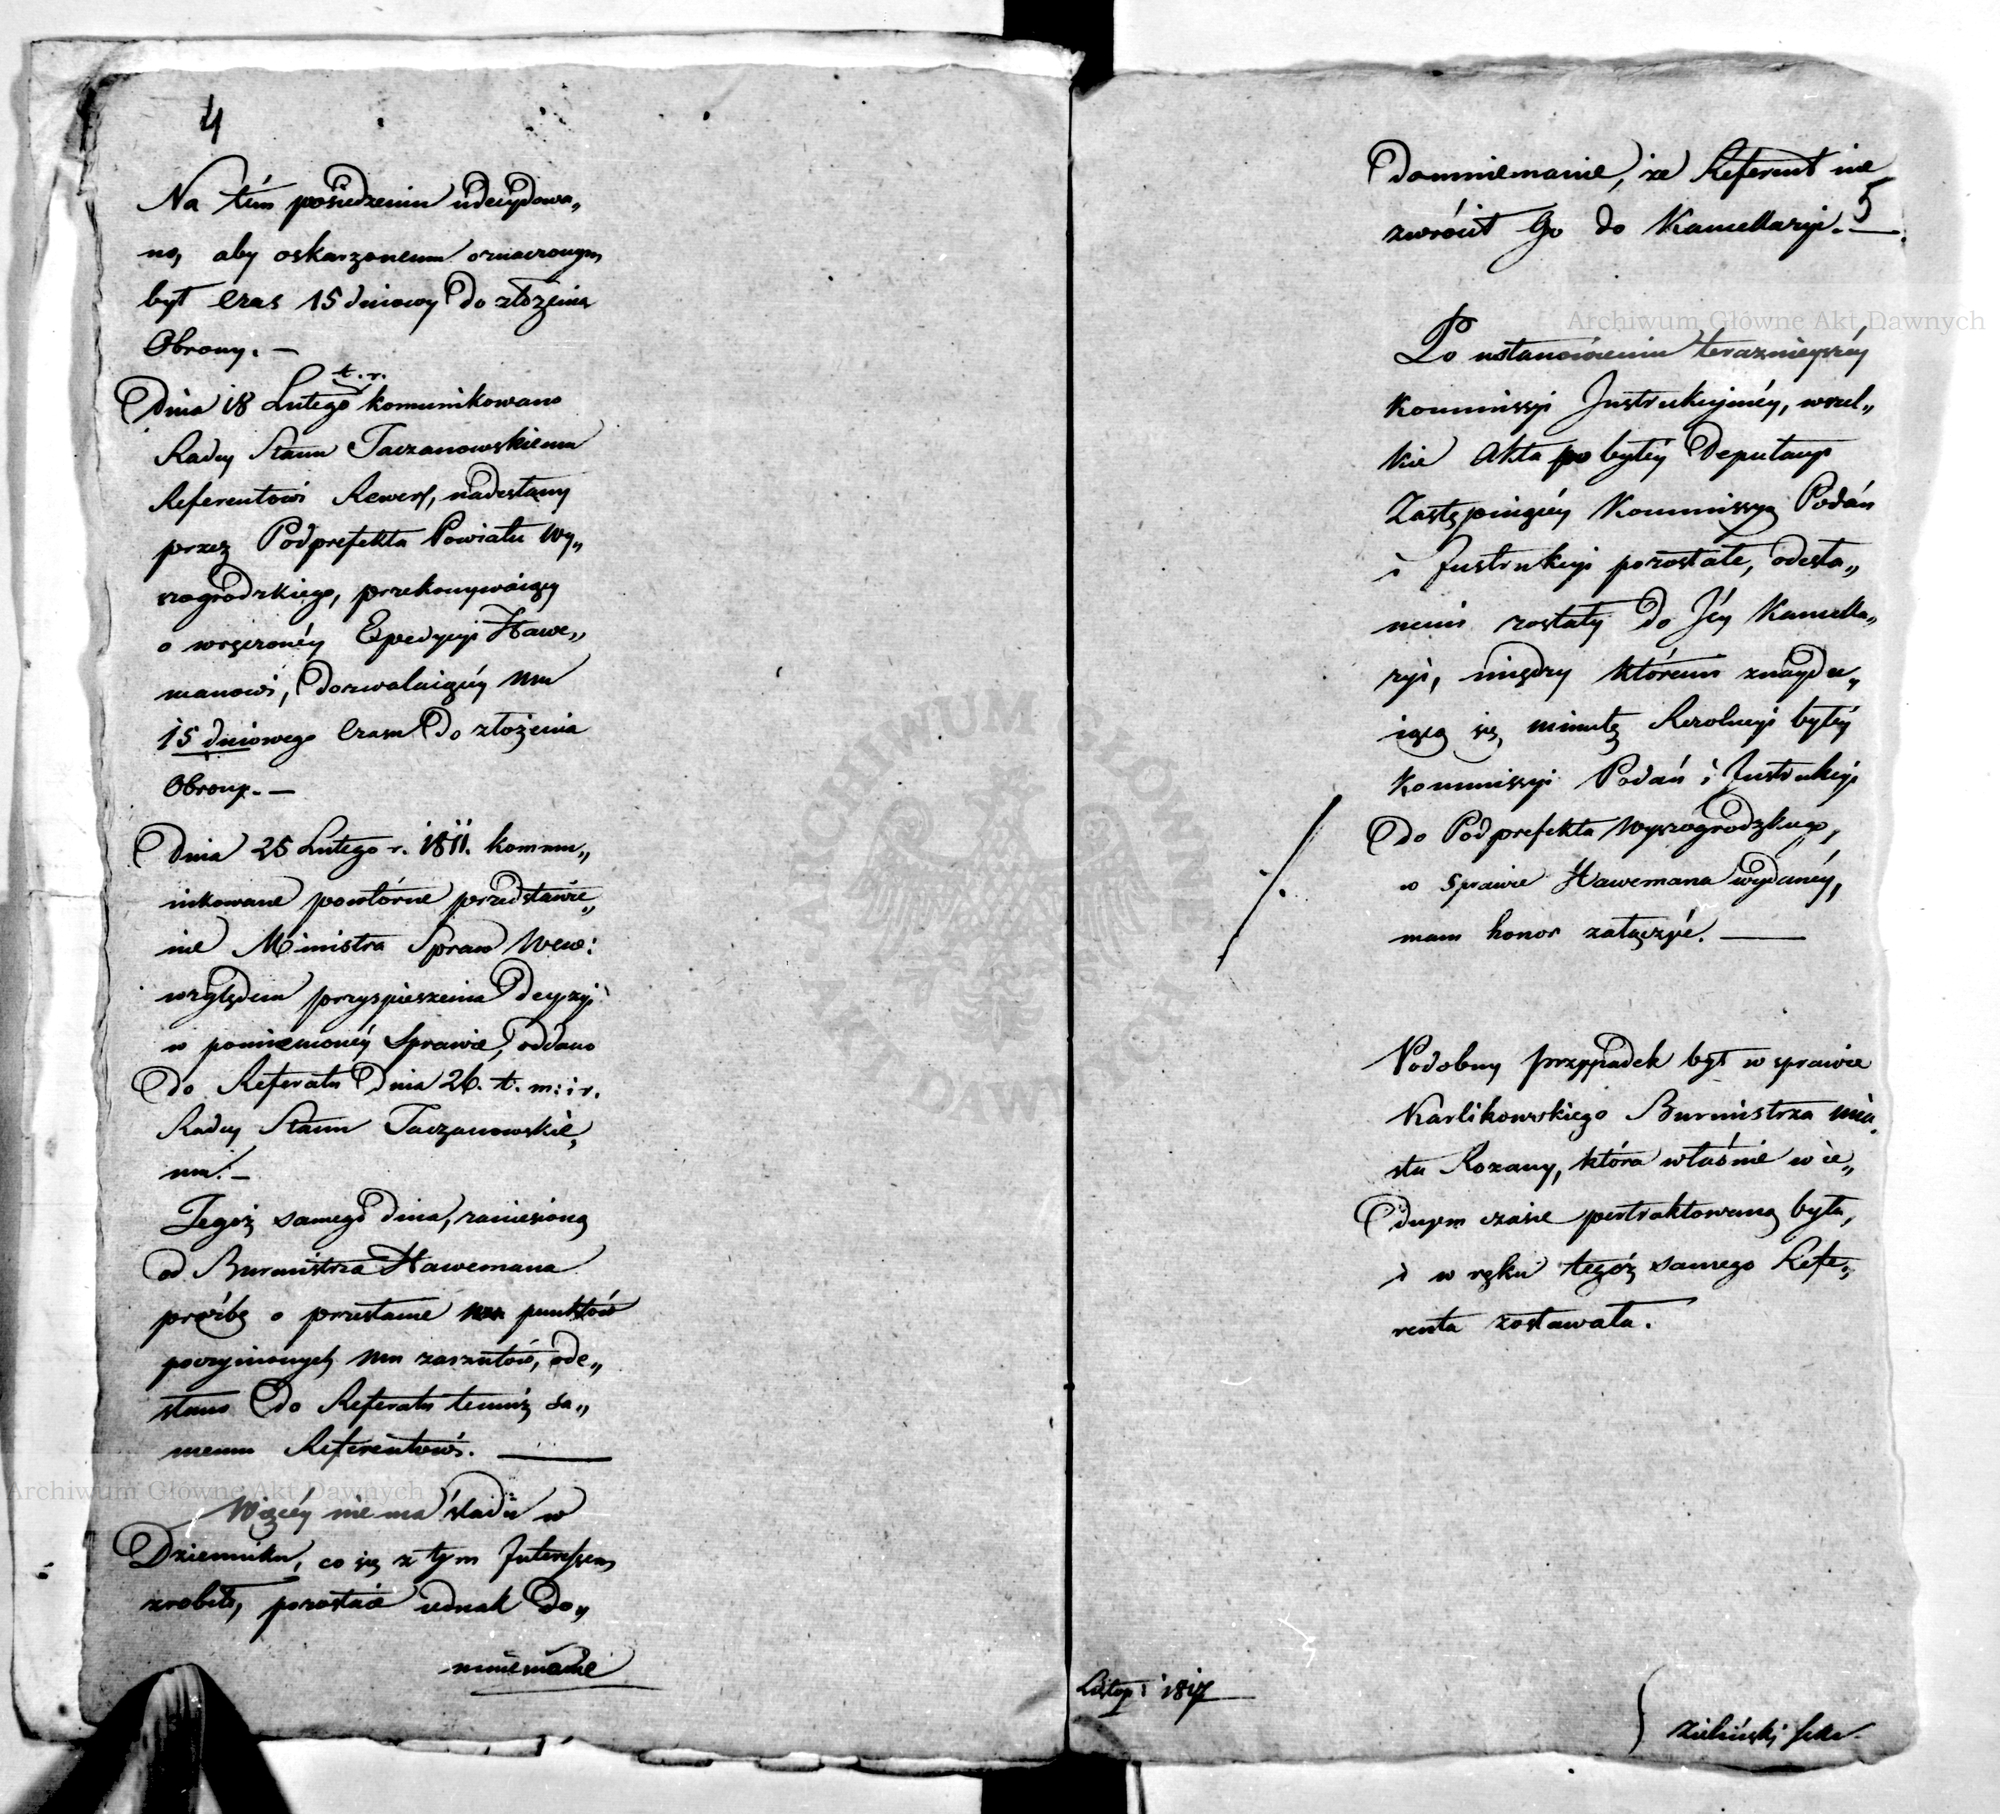 4
Na tém posiedzeniu udecydowa„
no, aby oskarżonemu oznaczonym
był czas 15 dniowy do złożenia
Obrony. —
t. r.
Dnia 18 Lutego komunikowano
Radcy Stanu Taczanowskiemu
Referentowi Rewers, nadesłany
przez Podprefekta Powiatu Wy„
szogrodzkiego, przekonywaiący
o wręczonéy Expedycyi Hawe„
manowi, dozwalaiącéy mu
15 dniowego czasu do złożenia
Obrony. —
Dnia 25 Lutego r. 1811. kommu„
nikowane powtórne przedstawie„
nie Ministra Spraw Wew:
względem przyspieszenia decyzyi
w pomienionéy Sprawie, oddano
do Referatu Dnia 26. t. m: i r.
Radcy Stanu Taczanowskie„
mu. —
Tegoż samego dnia, zaniesioną
od Burmistrza Hawemana
prośbę o przesłanie mu punktów
poczynionych mu zarzutów, ode„
słano do Referatu temuż sa„
memu Referentowi. —
Więcéy nie ma śladu w
Dzienniku, co się z tym Interessem
zrobiło, pozostaie iednak do„
mniemanie
Domniemanie, że Referent nie
zwrócił Go do Kancellaryi. —
5
Po ustanowieniu teraznieyszéy
Kommissyi Instrukcyinéy, wszel„
kie Akta po byłéy Deputacyi
Zastępuiącéy Kommissyą Podań
i Instrukcyi pozostałe, odesła„
nemi zostały do Jéy Kancella„
ryi, między któremi znaydu„
iącą się minutę Rezolucyi byłéy
Kommissyi Podań i Instrukcyi
do Podprefekta Wyszogrodzkiego,
w sprawie Hawemana wydanéy,
mam honor załączyć. —
Podobny przypadek był w sprawie
Karlikowskiego Burmistrza mia„
sta Rozany, która właśnie w ie„
dnym czasie pertraktowaną była,
i w ręku tegoż samego Refe„
renta zostawała.
Listop: 1817
Zieliński Sekr.
Archiwum Główne Akt Dawnych
Archiwum Główne Akt Dawnych
ARCHIWUM GŁÓWNE AKT DAWNYCH